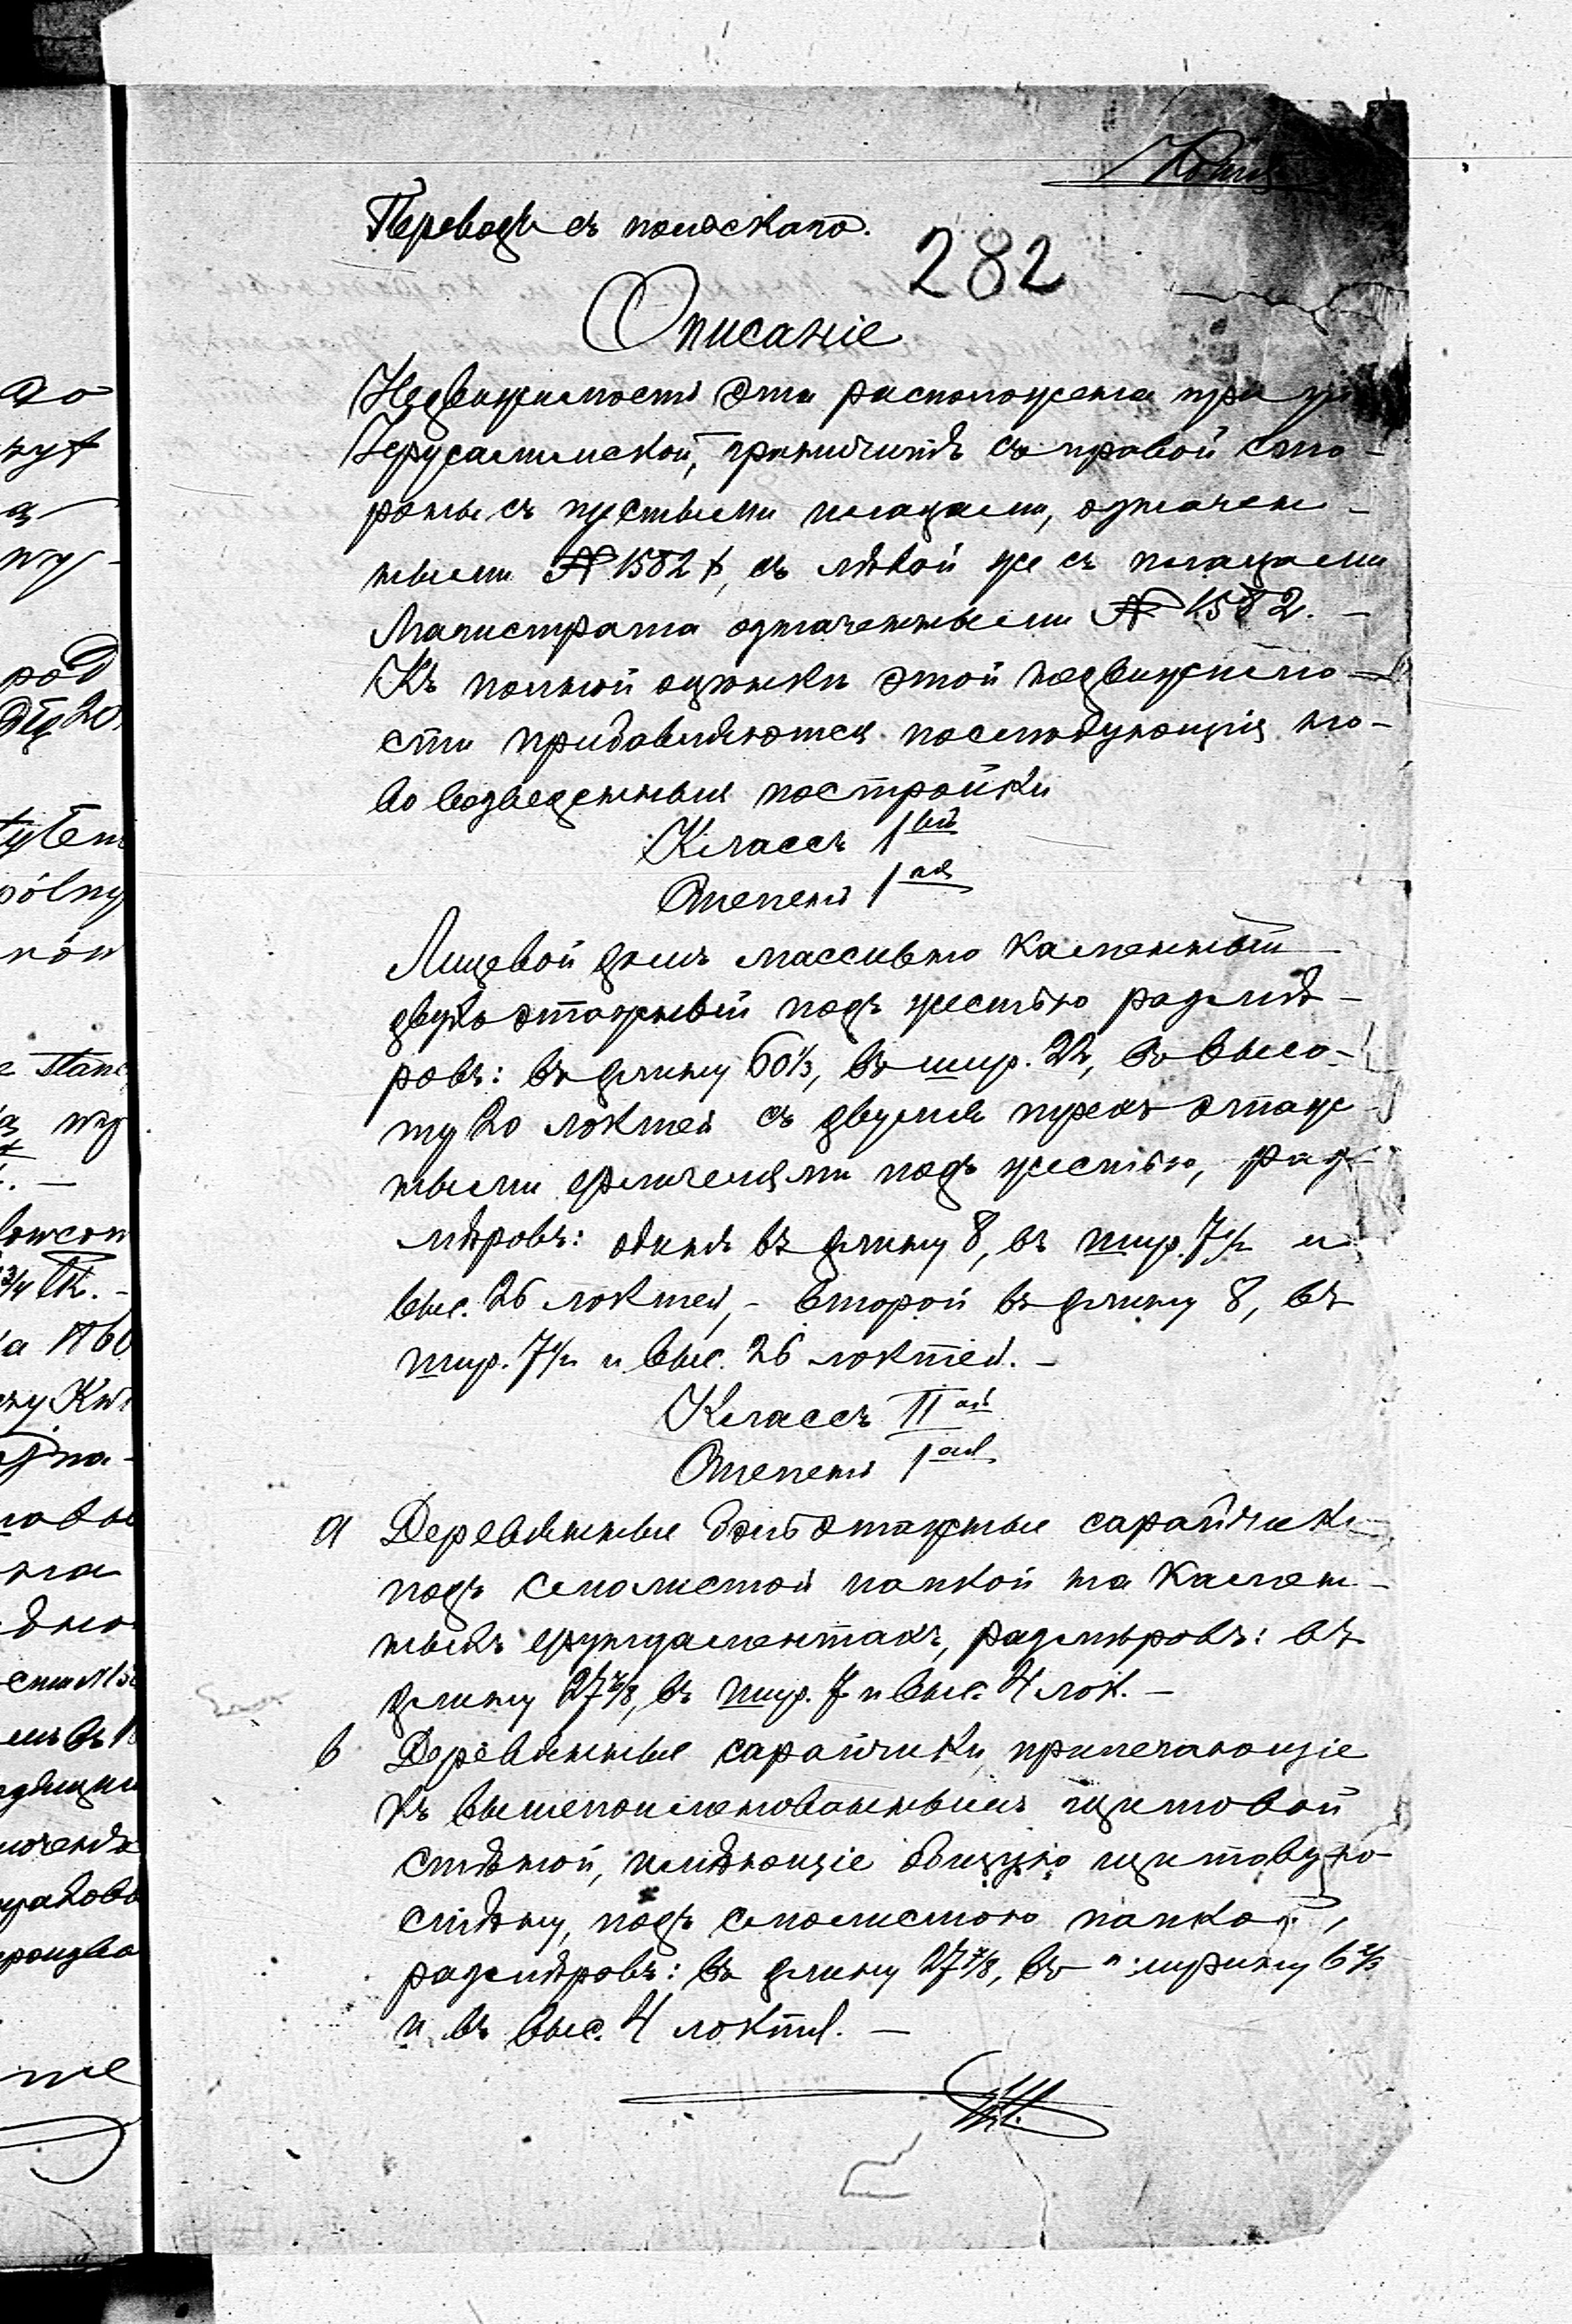 Копія
Переводъ съ польскаго.
282
Описаніе
Недвижимость эта расположена при ул.
Іерусалимской, граничитъ съ правой сто-
роны съ пустыми плацами, означен-
ными № 1582 f, съ лѣвой же съ плацами
Магистрата означенными № 1582. —
Къ полной оцѣнкѣ этой недвижимо-
сти прибавляются послѣдующія но-
во возведенныя постройки
Классъ 1ый
Степень 1ая
Лицевой домъ массивно каменный
двухъ этажный подъ жестью размѣ-
ровъ: въ длину 60⅓, въ шир. 22, въ высо-
ту 20 локтей съ двумя трехъ этаж-
ными флигелями подъ жестью, раз-
мѣровъ: одинъ въ длину 8, въ шир. 7½ и
выс. 26 локтей, - второй въ длину 8, въ
шир. 7½ и выс. 26 локтей. —
Классъ IIой
Степень 1ая
а Деревянные одно этажные сарайчики
подъ смолистой папкой на камен-
ныхъ фундаментахъ, размѣровъ: въ
длину 27⅞, въ шир. 7 и выс. 4 лок. —
b Деревянные сарайчики, прилегающіе
къ вышепоименованнымъ щитовой
стѣной, имѣющіе общую щитовую
стѣну, подъ смолистою папкой,
размѣровъ: въ длину 27⅞, въ ширину 6⅔
и въ выс. 4 локтя. —